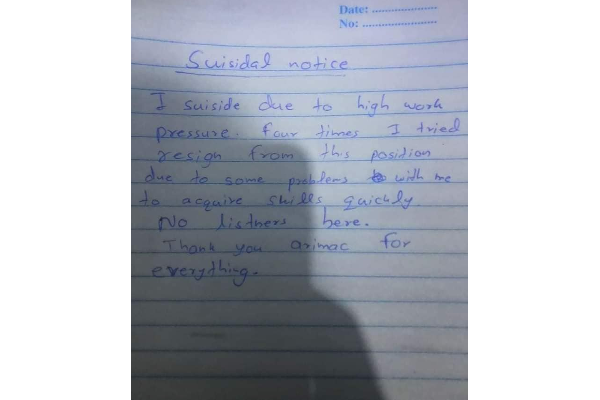 Date: ....................
No: .......................
Suisidal notice
I suiside due to high work
pressure. four times I tried
resign from this position
due to some problems with me
to acquire skills quickly
No listners here.
Thank you arimac for
everything.